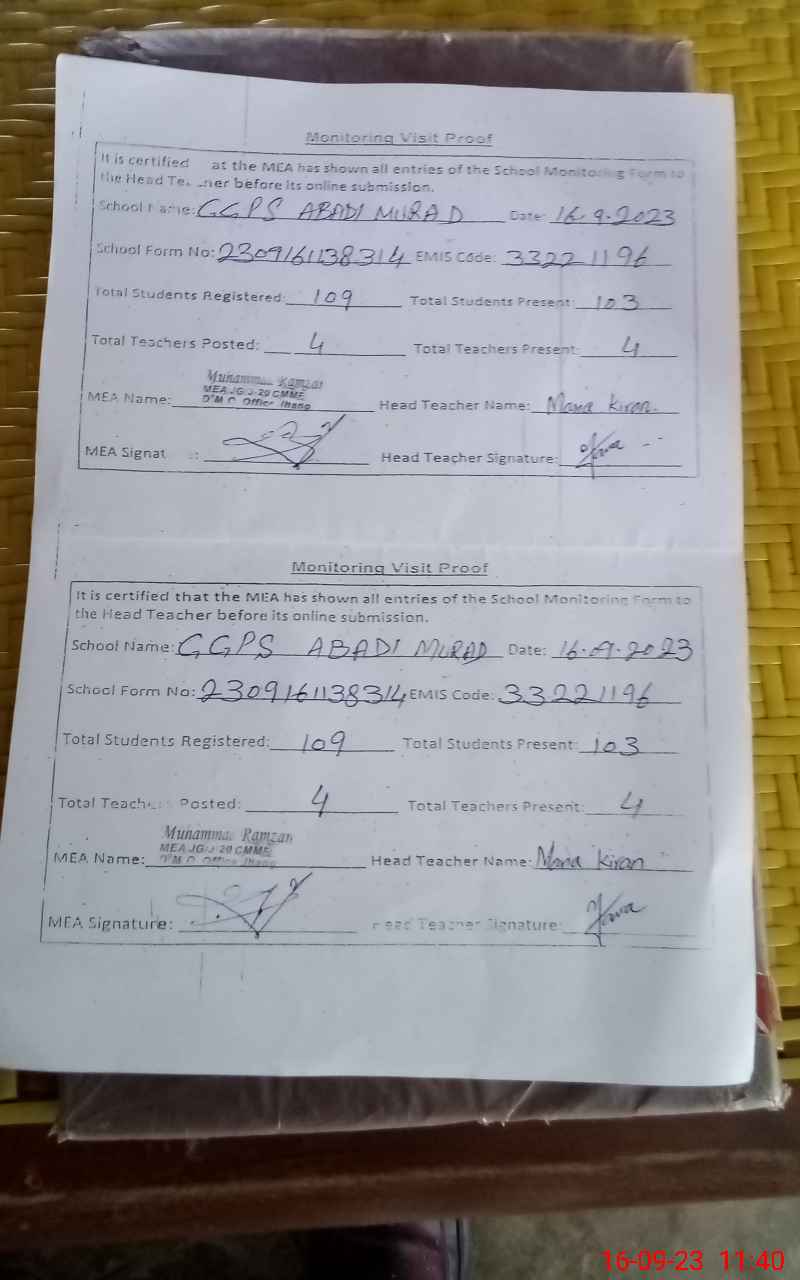 Monitoring Visit Proof
It is certified at the MEA has shown all entries of the School Monitoring Form to
the Head Te her before its online submission.
School Name: GGPS ABADI MURAD Date: 16.9.2023
School Form No: 2309161138314 EMIS Code: 33221196
Total Students Registered: 109 Total Students Present: 103
Total Teachers Posted: 4 Total Teachers Present: 4
Muhammad Ramzan
MEA JG/J-29 CMMF
MEA Name: D'M O Office Jhang Head Teacher Name: Mona Kiran
MEA Signat : Head Teacher Signature:
Monitoring Visit Proof
It is certified that the MEA has shown all entries of the School Monitoring Form to
the Head Teacher before its online submission.
School Name: GGPS ABADI MURAD Date: 16.09.2023
School Form No: 2309161138314 EMIS Code: 33221196
Total Students Registered: 109 Total Students Present: 103
Total Teachers Posted: 4 Total Teachers Present: 4
Muhammad Ramzan
MEA JG/J-29 CMMF
MEA Name: D'M O Office Jhang Head Teacher Name: Mona Kiran
MEA Signature: Head Teacher Signature:
16-09-23 11:40